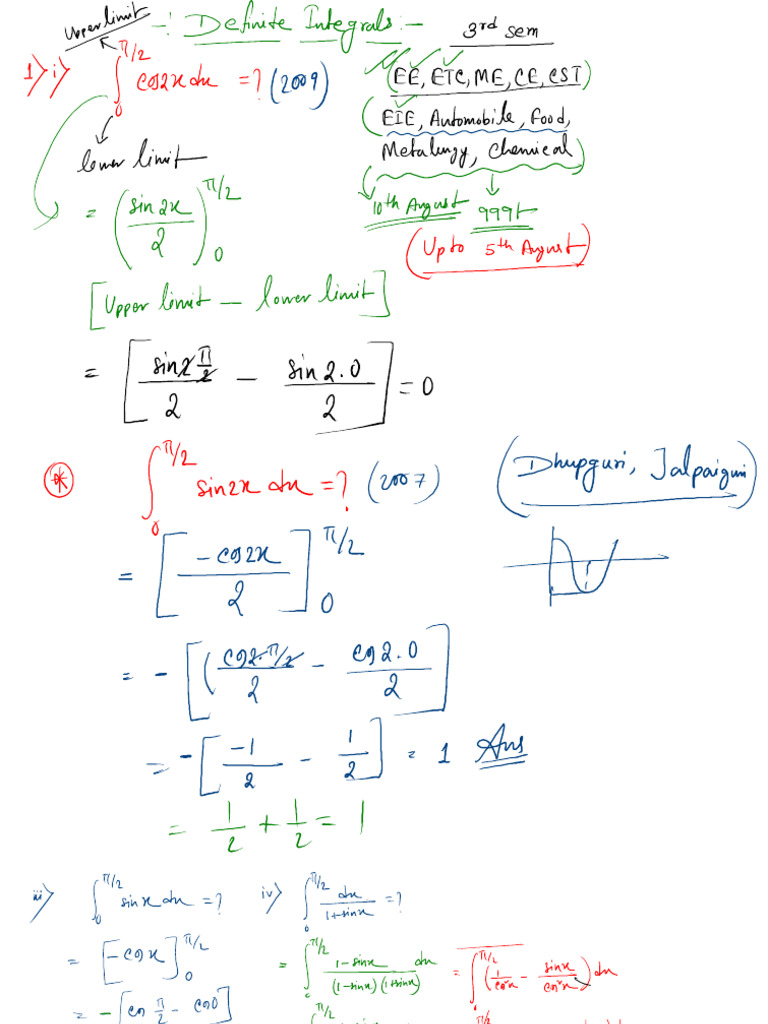 Upper limit
-: Definite Integrals:-
3rd sem
1) i) ∫₀^{π/2} cos2x dx = ? (2009)
(EE, ETC, ME, CE, CST)
(EIE, Automobile, Food,
Metalurgy, Chemical)
lower limit
10th August 999/-
(Upto 5th August)
= (sin2x/2)₀^{π/2}
[Upper limit - lower limit]
= [sin2π/2/2 - sin2.0/2] = 0
* ∫₀^{π/2} sin2x dx = ? (2007)
(Dhupguri, Jalpaiguri)
= [-cos2x/2]₀^{π/2}
= -[(cos2.π/2/2 - cos2.0/2]
= -[-1/2 - 1/2] = 1 Ans
= 1/2 + 1/2 = 1
iii) ∫₀^{π/2} sinx dx = ?
= [-cosx]₀^{π/2}
= -[cos π/2 - cos0]
iv) ∫₀^{π/2} dx/1+sinx = ?
= ∫₀^{π/2} 1-sinx/(1-sinx)(1+sinx) dx = ∫₀^{π/2} (1/cos²x - sinx/cos²x) dx